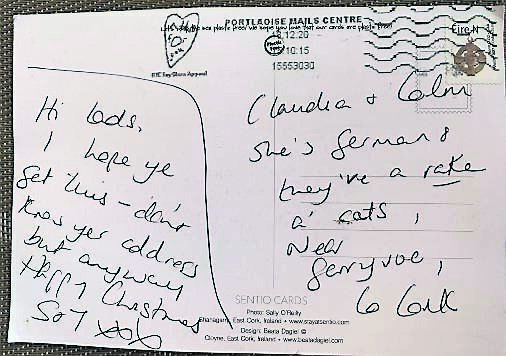 PORTLAOISE MAILS CENTRE
.12.20
10:15
15553030
Éire N
RTE Toy Show Appeal
Hi lads,
I hope ye
get this - don't
know yer address
but anyway
Happy Christmas
xoxo
Claudia + Colm
She's german &
they've a rake
a' cats,
Near
Gerryvoe,
Co Cork
SENTIO CARDS
Photo: Sally O'Reilly
Shanagarry, East Cork, Ireland • www.stayatsentio.com
Design: Beata Dagiel ©
Cloyne, East Cork, Ireland • www.beatadagiel.com